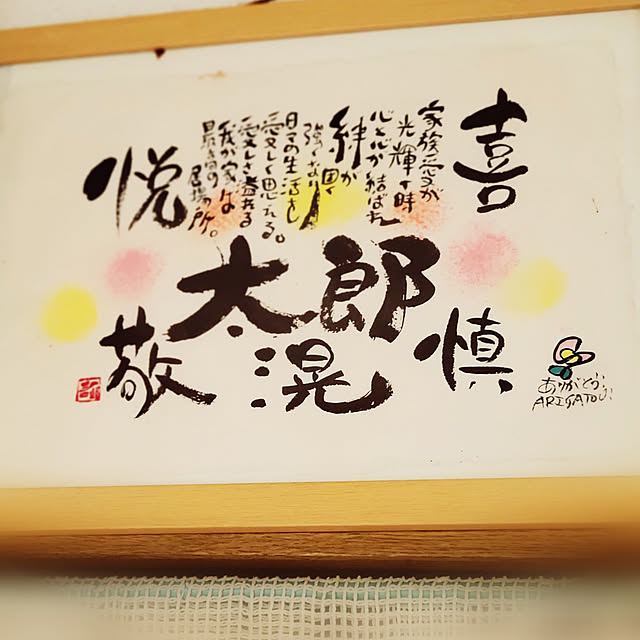 喜
家族愛が
光輝く時
心と心が結ばれ
絆が
固く
強くなり
日々の生活さえ
愛しく思える。
愛しさ溢れる
我が家は
最高の
居場所。
悦
太郎
慎
滉
敬
ありがとう!!
ARIGATOU